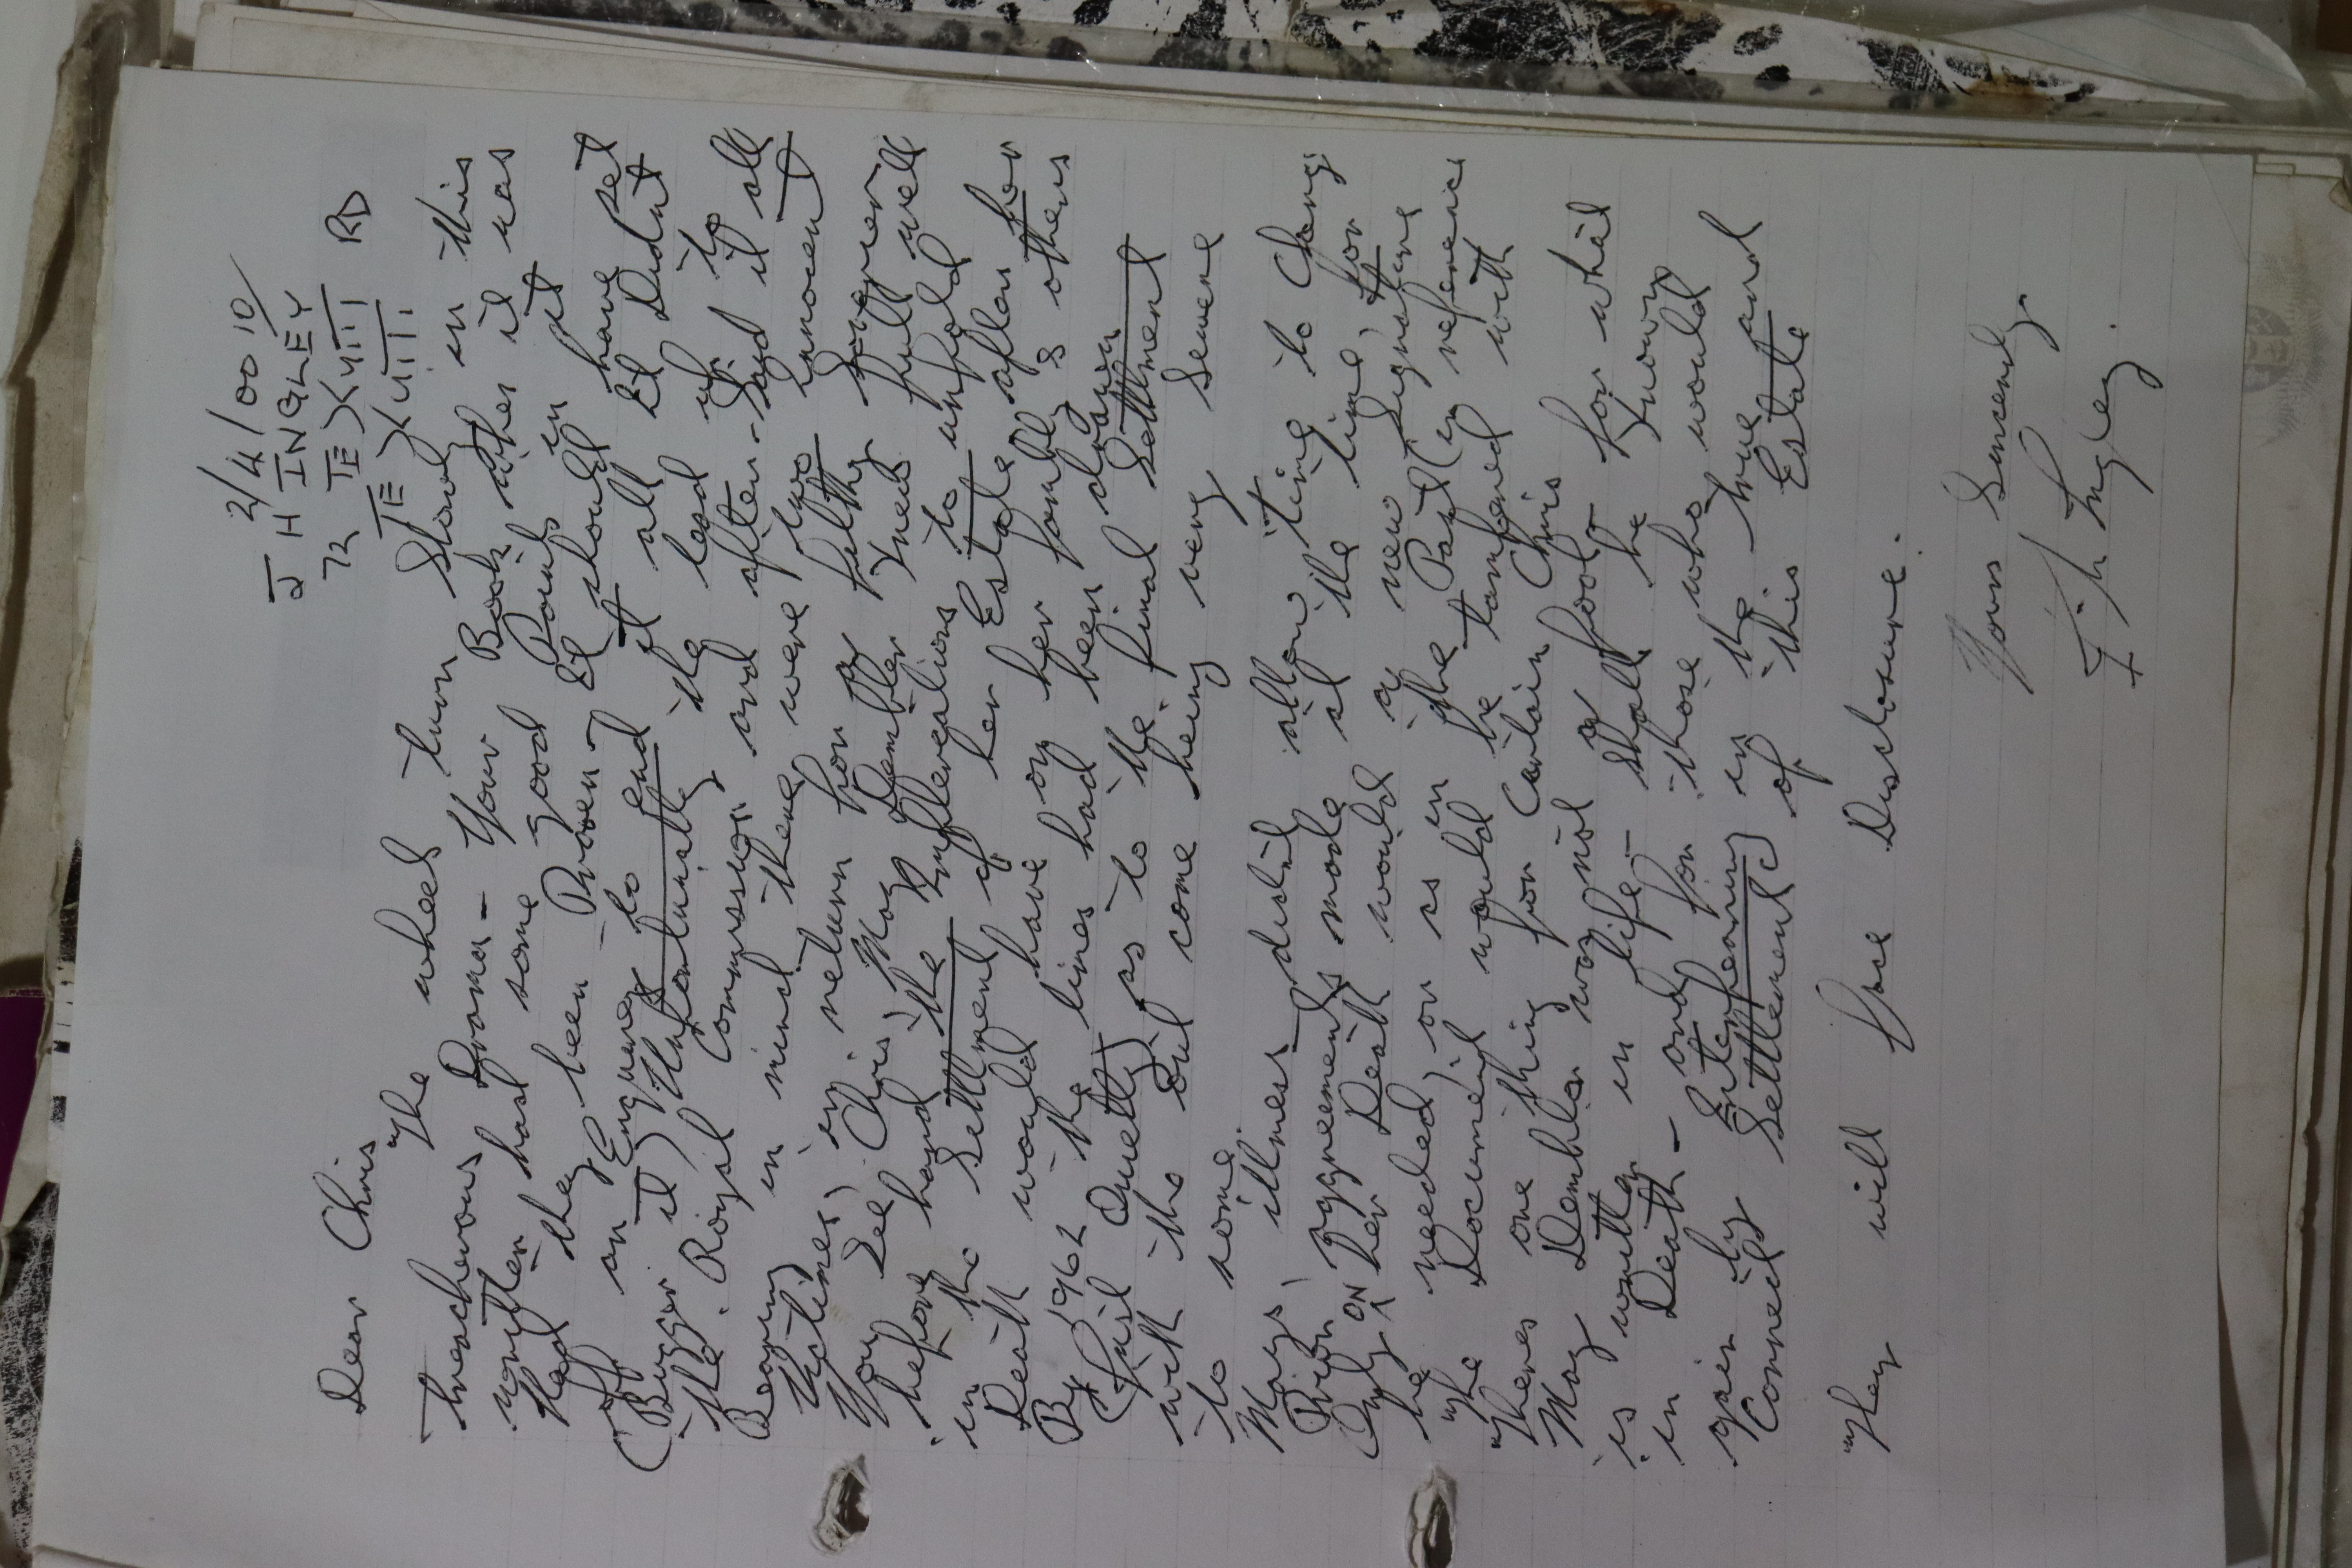 2/4/0010/
J H INGLEY
72
RD
Dear Chris
The wheel turn slowly in this
treacherous Drama - Your Book when it was
written had some good Points in it
Had they been Proven - It should have set
off an Enquirey to end it all It Didnt
(Bugger it) Unfortunately the lead up to
the. Royal Commission and after - Said it all
Bearing in mind there were two innocent
Victimes, in return for a filthy Sovereign
You see Chris, May Dembler knew full well
before hand the Ramflications to unfold
in the settlement of her Estate after her
Death would have on her family & others
By 1962 the lines had been drawn
Quietly as to the final settlment
with the Oil come being very Severe
to some
Mays, illness didnt allow time to Change
Prior Aggreements made at the time, for
Only ON her Death would a new Signature
be needed, or as in the Past (in reference
The Document would be tampered with
Theres one thing for Certain Chris
May Dembler was not a fool for what
is written in life - shall be known
in Death - and for those who would
gain by Enterfearing in the true and
Correct Settlement of this Estate
They will face Disclosure.
Yours Sincerely
J. h Ingley.